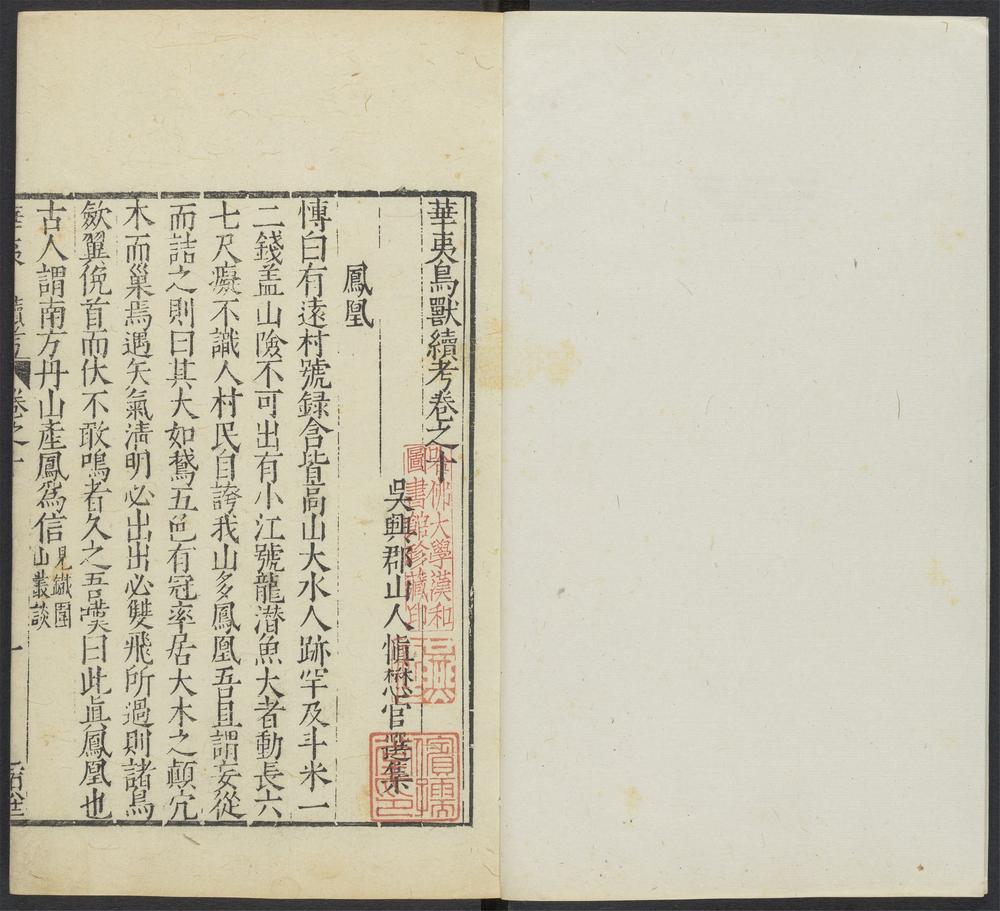 華夷鳥獸續考卷之十
吳興郡山人慎懋官選集
鳳凰
傳曰有遠村號錄含皆高山大水人跡罕及斗米一
二錢盖山險不可出有小江號龍潜魚大者動長六
七尺癡不識人村民自誇我山多鳳凰吾且謂妄從
而詰之則曰其大如鵞五色有冠率居大木之顛穴
木而巢焉遇天氣清明必出出必雙飛所過則諸鳥
歛翼俛首而伏不敢鳴者久之吾嘆曰此眞鳳凰也
古人謂南方丹山產鳳爲信見鐵圍山叢談
華夷 續考 卷之十 一
哈佛大學漢和圖書館珍藏印